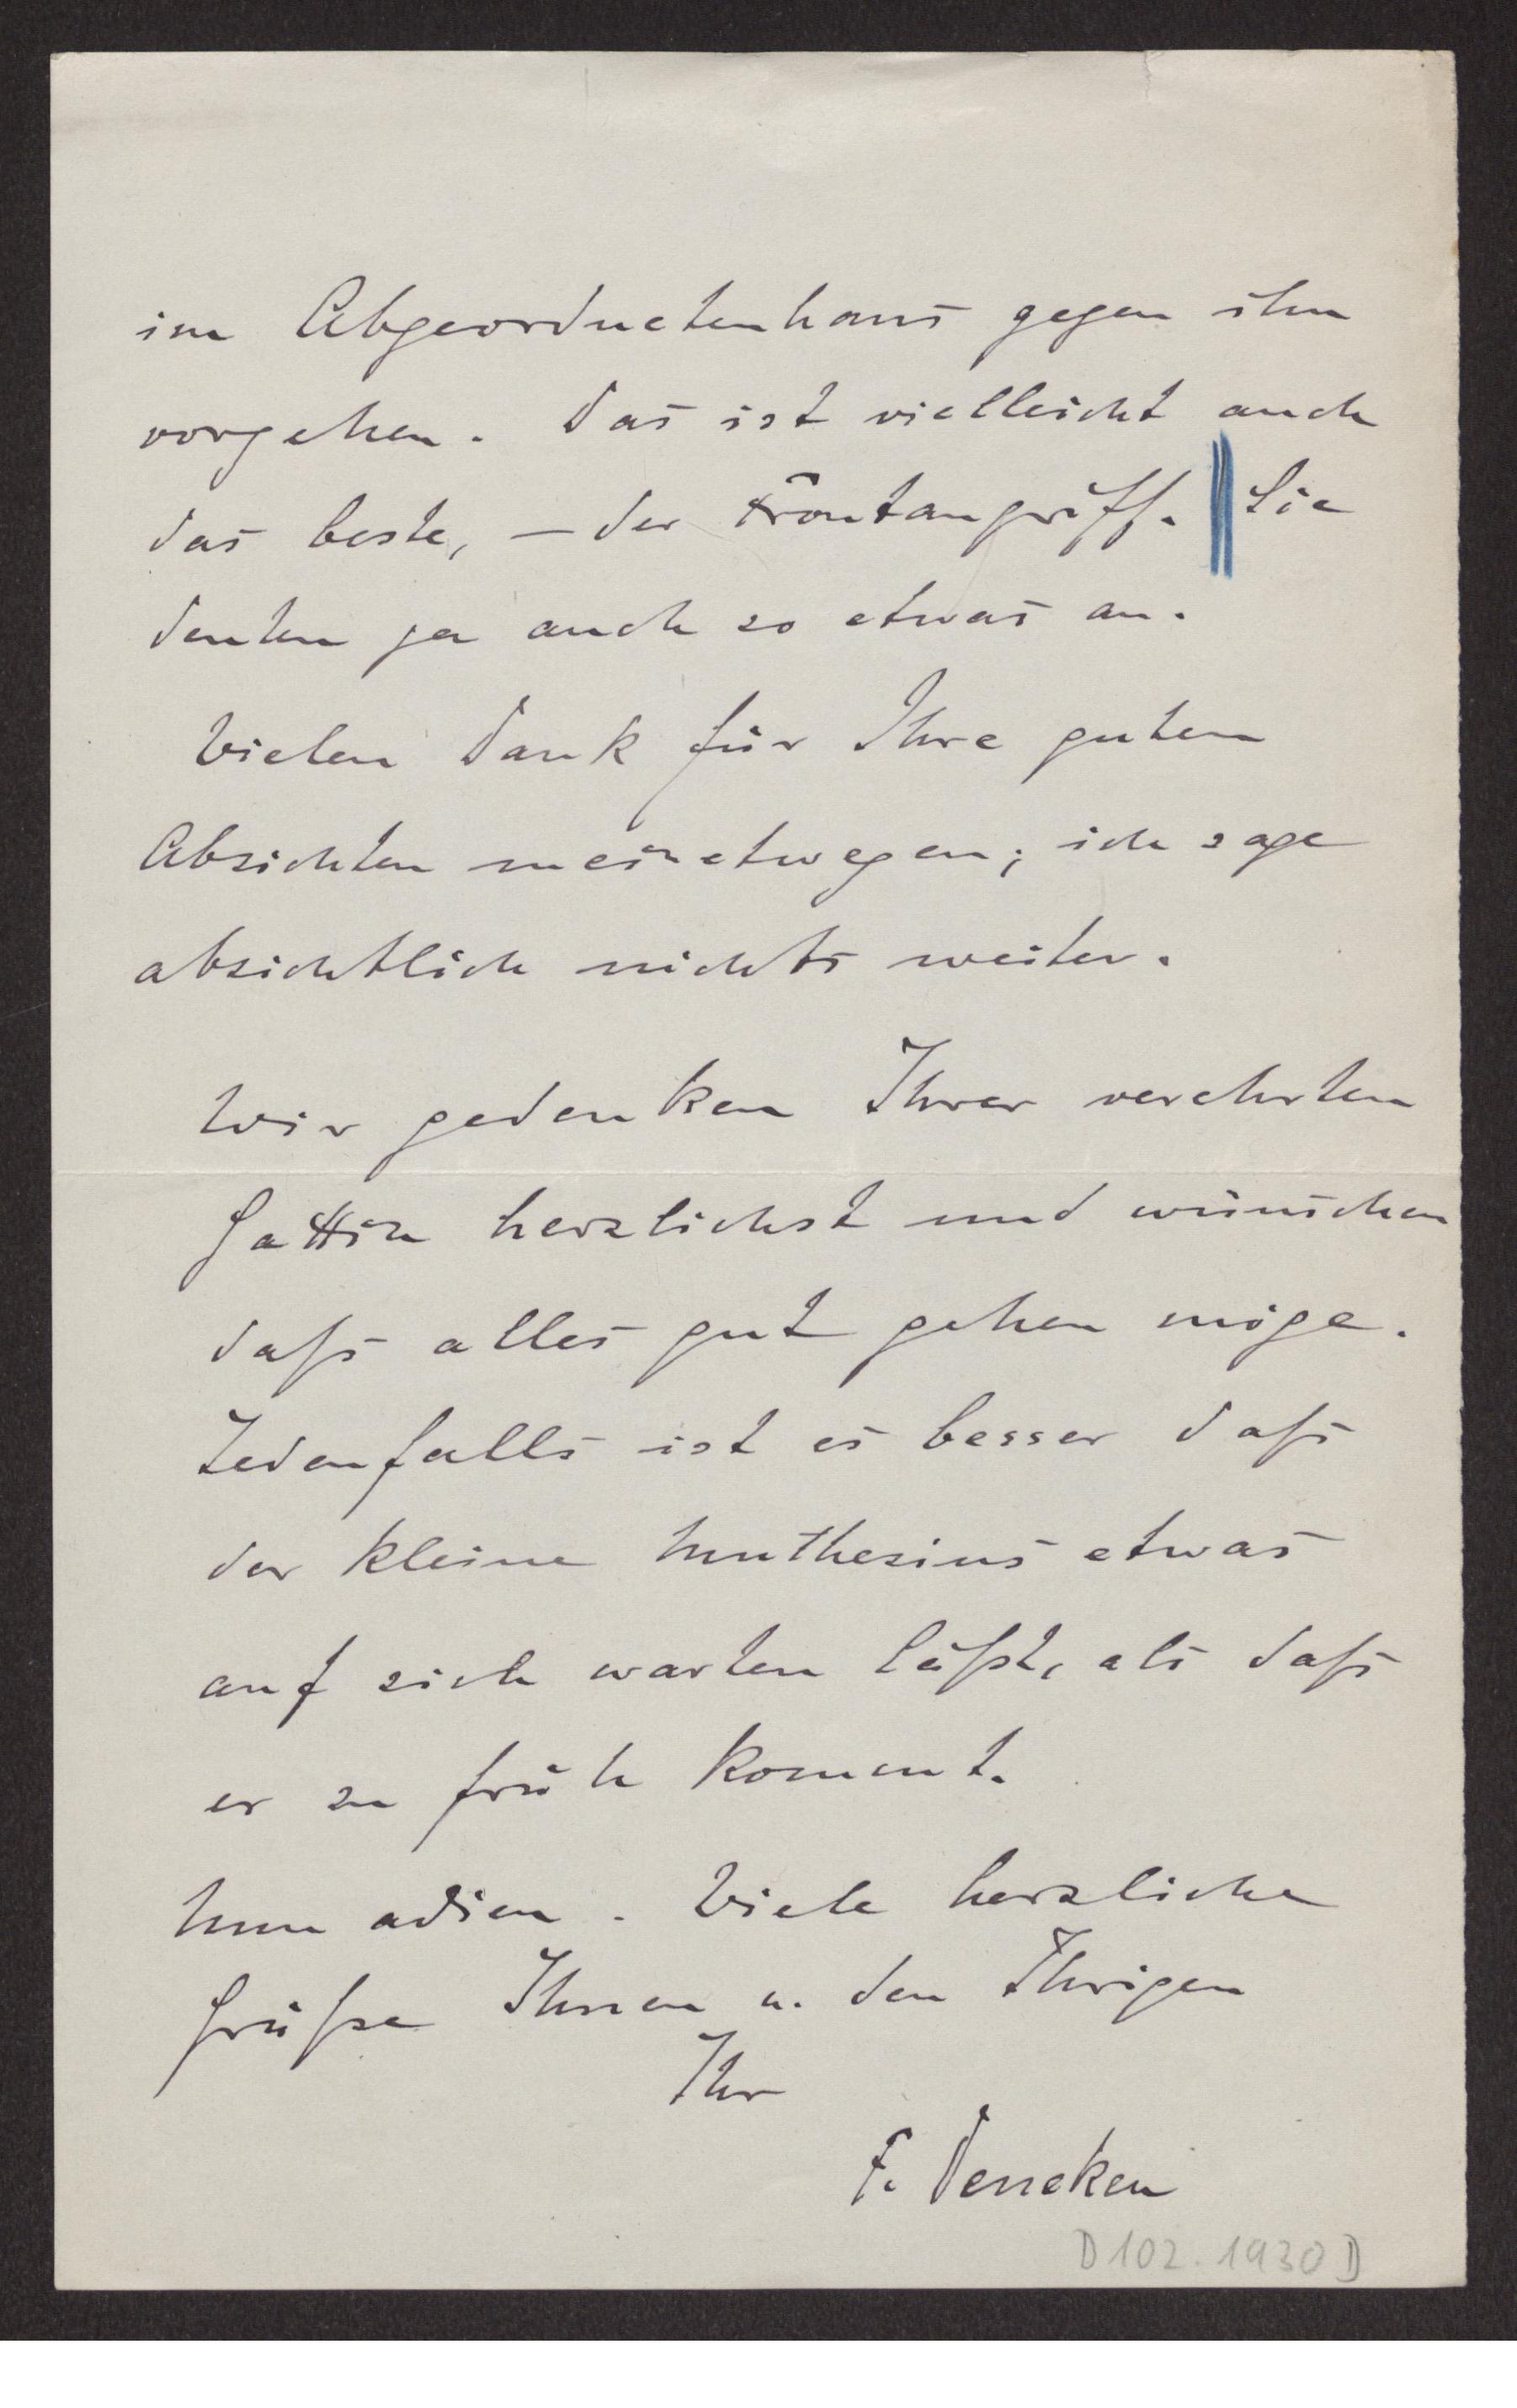 im Abgeordnetenhaus gegen ihn
vorgehen. Das ist vielleicht auch
das beste, — der Frontangriff. Sie
deuten ja auch so etwas an.
Vielen Dank für Ihre guten
Absichten meinetwegen; ich sage
absichtlich nichts weiter.
Wir gedenken Ihrer verehrten
Gattin herzlichst und wünschen
daß alles gut gehen möge.
Jedenfalls ist es besser daß
der kleine Muthesius etwas
auf sich warten läßt, als daß
er zu früh kommt.
Nun adieu. Viele herzliche
Grüße Ihnen u. den Ihrigen
Ihr
F. Deneken
D 102. 1930 D